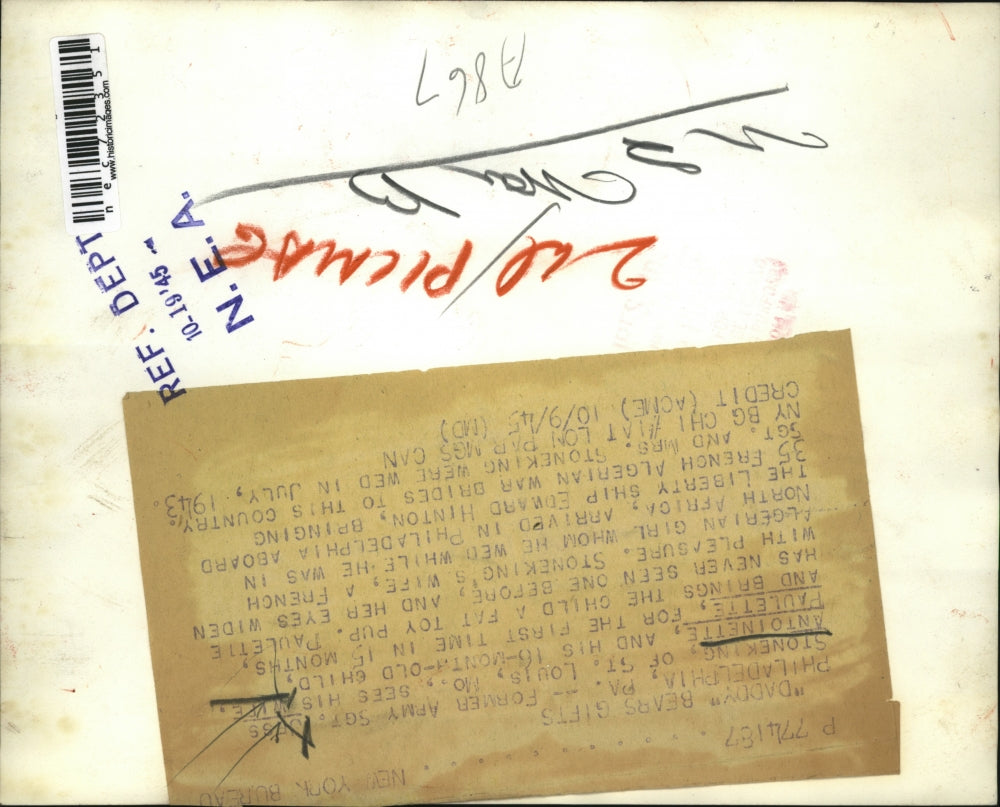 P 774187 . . . . . . . NEW YORK BUREAU
"DADDY" BEARS GIFTS
PHILADELPHIA, PA. -- FORMER ARMY SGT. JESS
STONEKING, OF ST. LOUIS, MO., SEES HIS WIFE,
ANTOINETTE, AND HIS 16-MONTH-OLD CHILD,
PAULETTE, FOR THE FIRST TIME IN 15 MONTHS,
AND BRINGS THE CHILD A FAT TOY PUP. PAULETTE
HAS NEVER SEEN ONE BEFORE, AND HER EYES WIDEN
WITH PLEASURE. STONEKING'S WIFE, A FRENCH
ALGERIAN GIRL WHOM HE WED WHILE HE WAS IN
NORTH AFRICA, ARRIVED IN PHILADELPHIA ABOARD
THE LIBERTY SHIP EDWARD HINTON, BRINGING
35 FRENCH ALGERIAN WAR BRIDES TO THIS COUNTRY.
SGT. AND MRS. STONEKING WERE WED IN JULY, 1943.
NY BG CHI LON PAR MGS CAN
CREDIT (ACME) 10/9/45 (MD)
PICMAG
U S
A867
REF. DEPT
10-19'45
N. E. A.
www.historicimages.com
nec72351